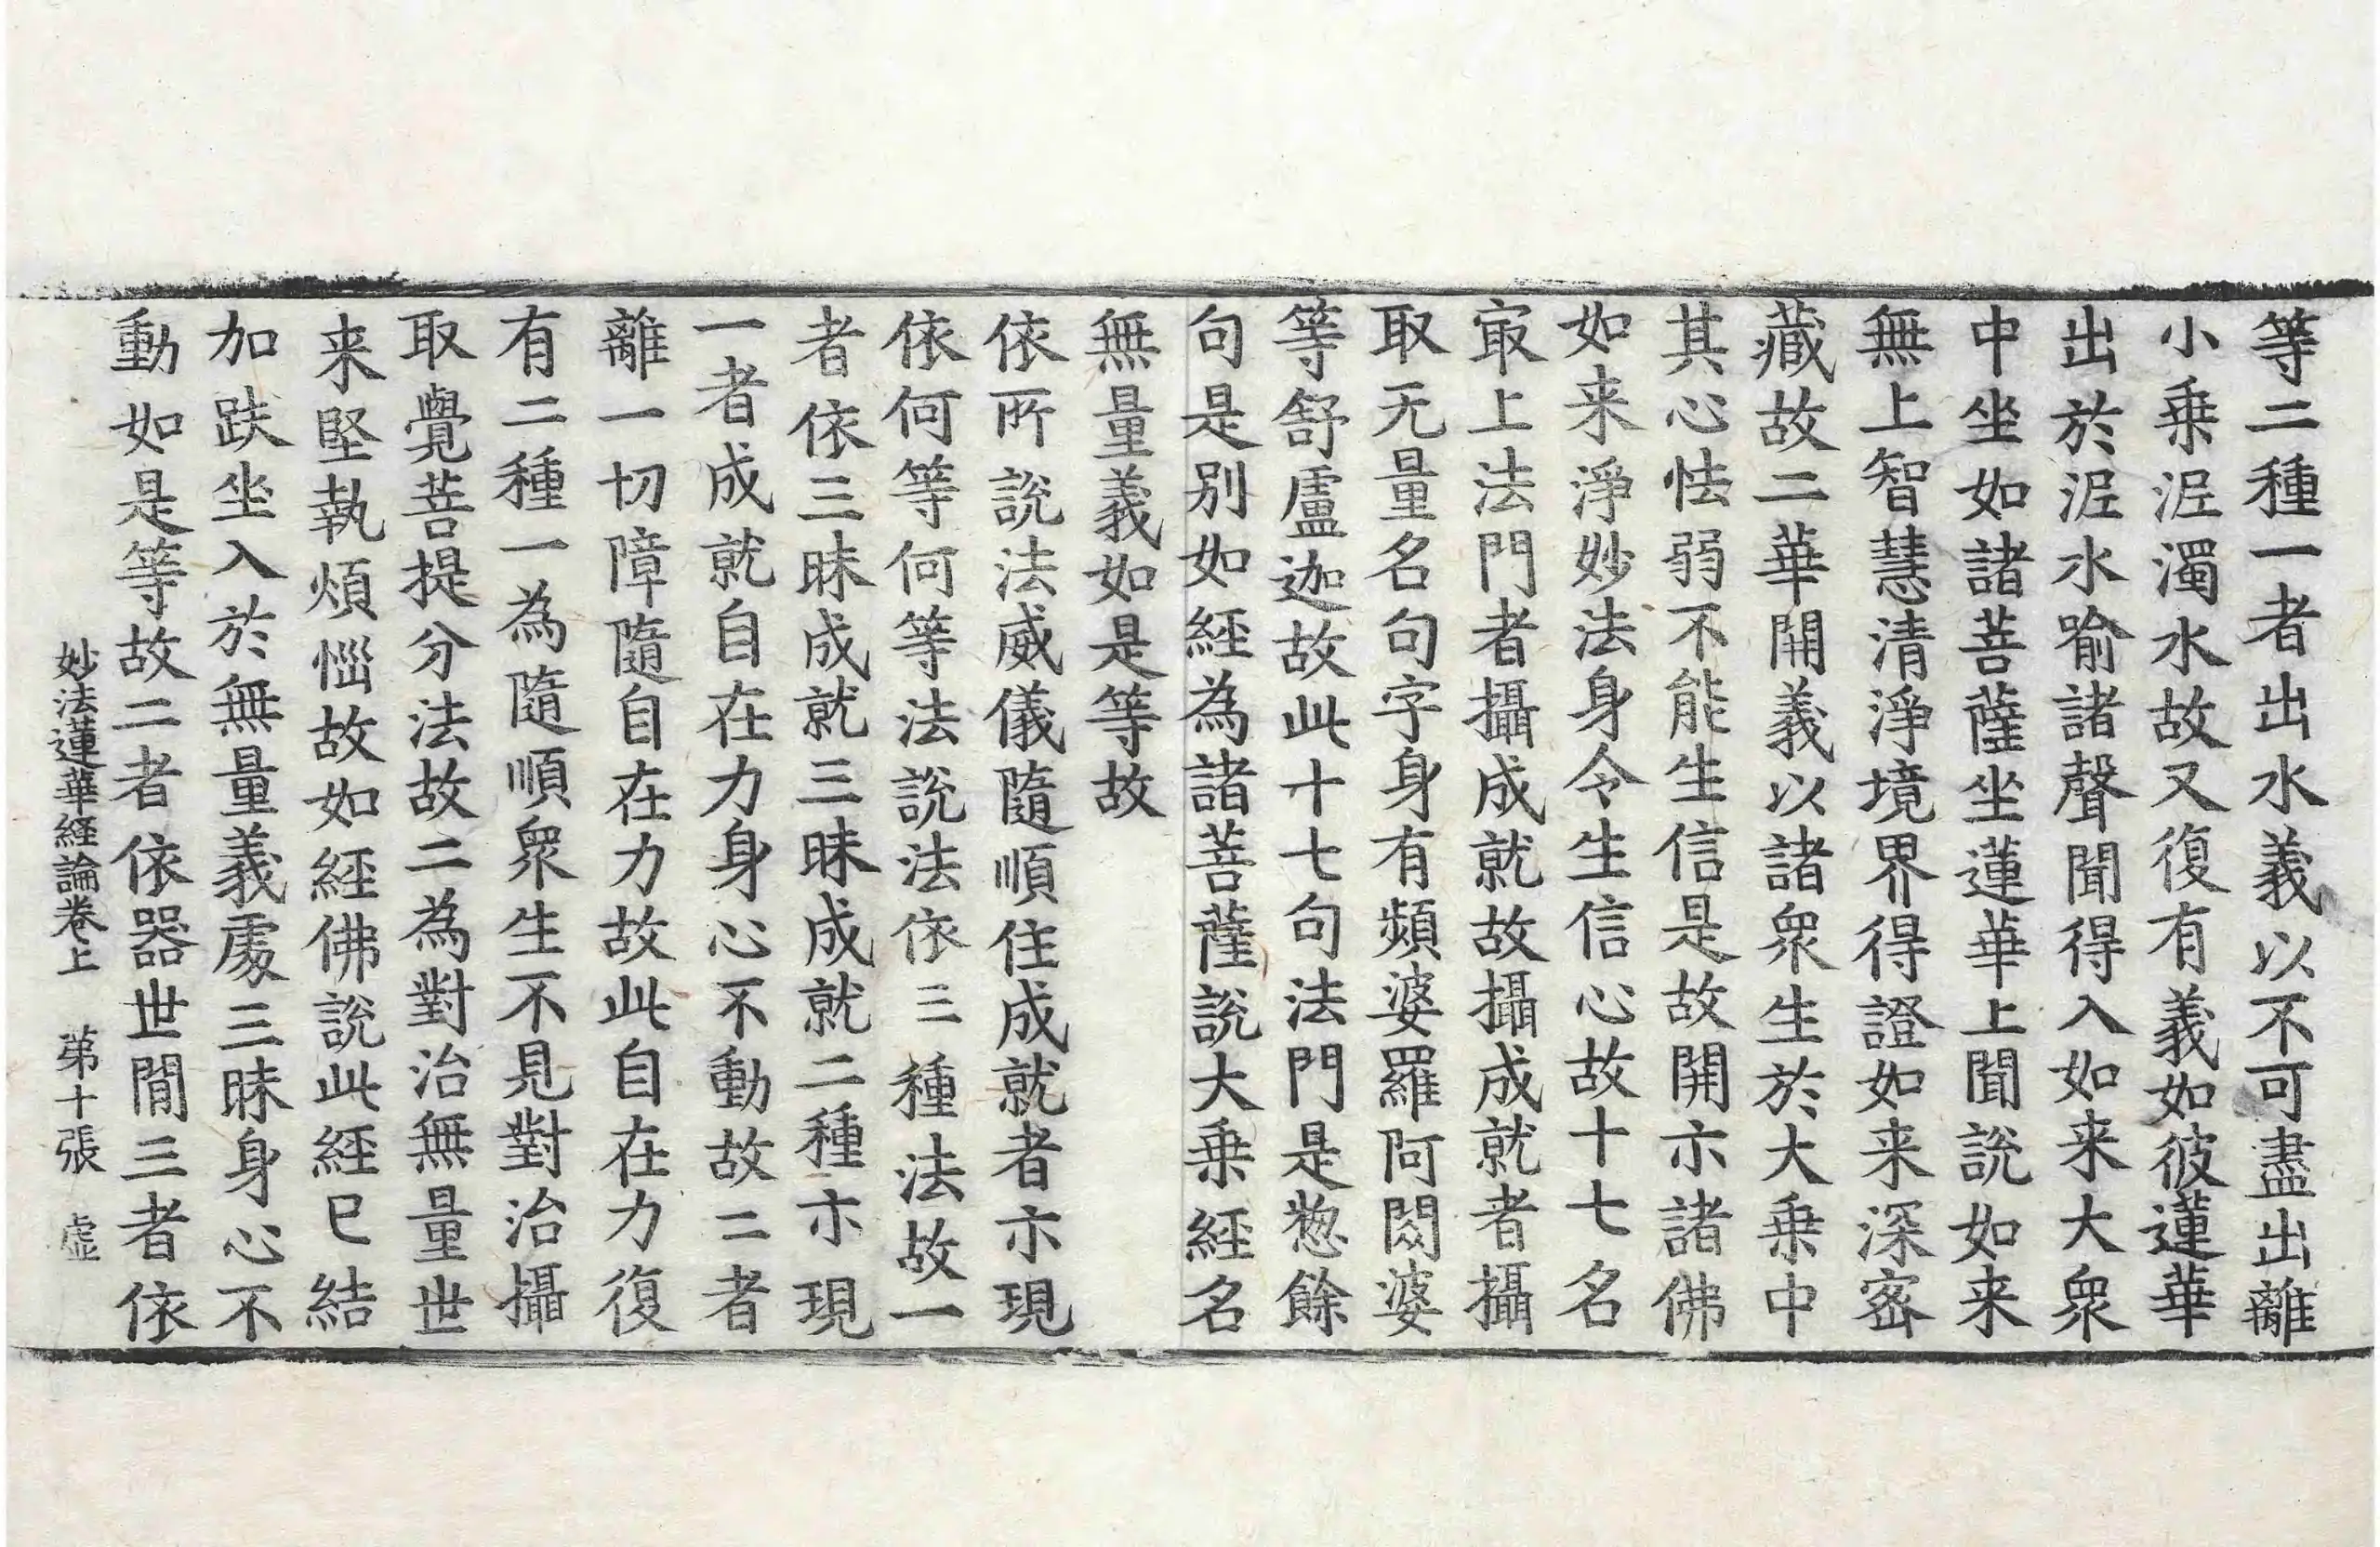 等二種一者出水義以不可盡出離
小乗泥濁水故又復有義如彼蓮華
出於泥水喻諸聲聞得入如来大衆
中坐如諸菩薩坐蓮華上聞說如来
無上智慧清淨境界得證如来深密
藏故二華開義以諸衆生於大乗中
其心怯弱不能生信是故開示諸佛
如来淨妙法身令生信心故十七名
㝡上法門者攝成就故攝成就者攝
取无量名句字身有頻婆羅阿閦婆
等舒盧迦故此十七句法門是惣餘
句是別如經為諸菩薩說大乗經名
無量義如是等故
依所說法威儀隨順住成就者示現
依何等何等法說法依三種法故一
者依三昧成就三昧成就二種示現
一者成就自在力身心不動故二者
離一切障隨自在力故此自在力復
有二種一為隨順衆生不見對治攝
取覺菩提分法故二為對治無量世
来堅執煩惱故如經佛說此經已結
加趺坐入於無量義處三昧身心不
動如是等故二者依器世間三者依
妙法蓮華経論卷上　第十張　虛